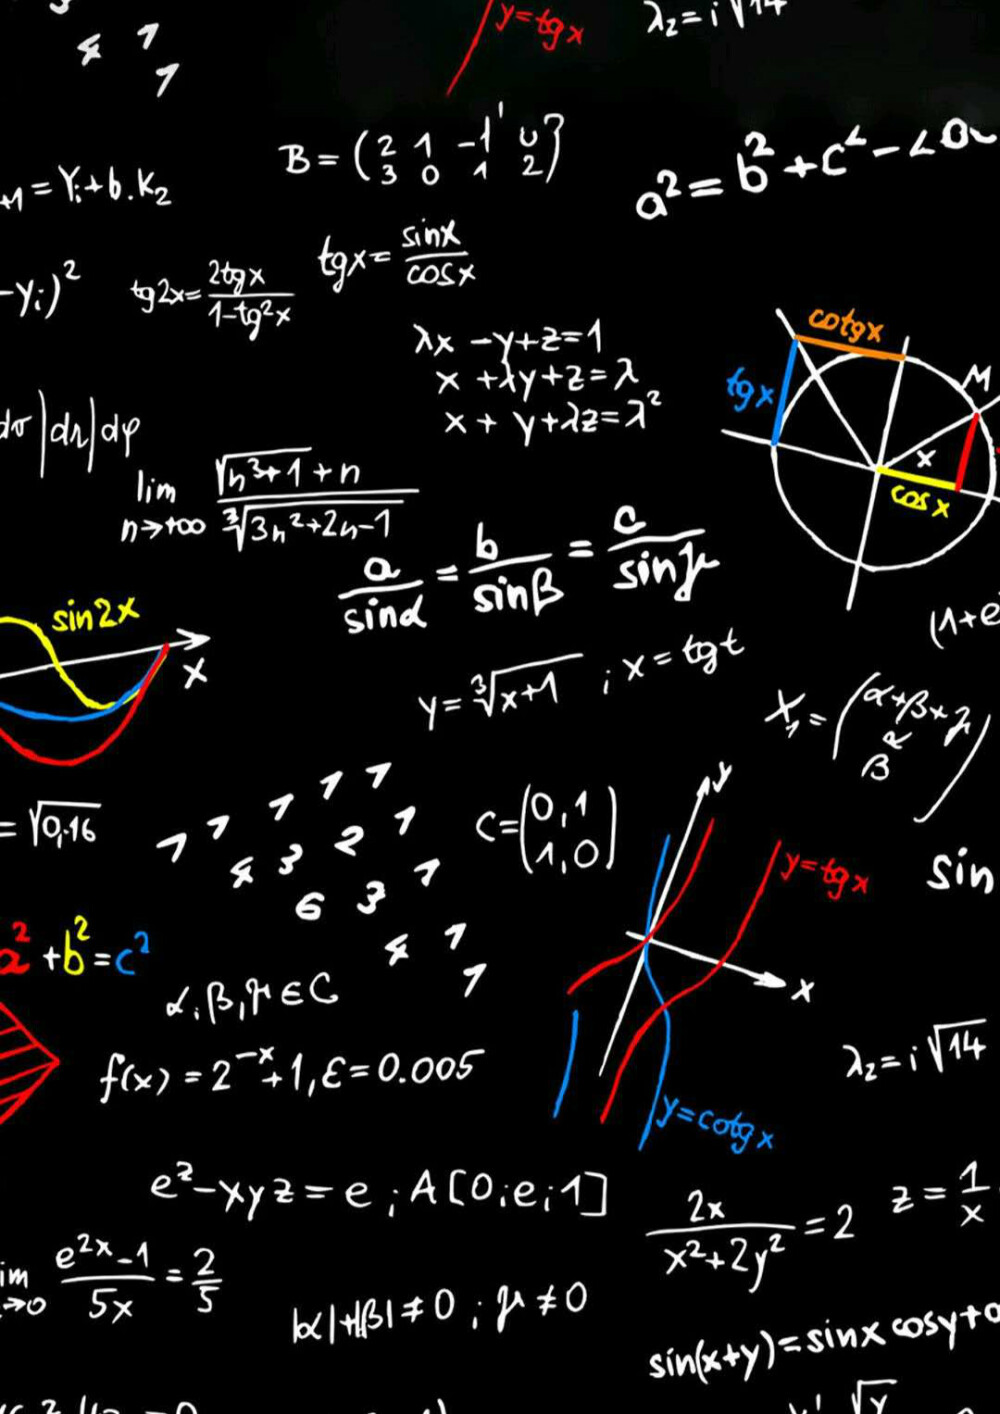 y=tgx
λ₂=i√14
4 1
1
B=(2 1 -1 0
3 0 1 2)
+1=Yi+b.K₂
a²=b²+c²-2
-yi)²
tg2x=2tgx/1-tg²x
tgx=sinx/cosx
λx-y+z=1
x+λy+z=λ
x+y+λz=λ²
cotgx
tgx
M
x
cosx
|dr|dφ
lim n→+∞ √n³+1+n/∛3n²+2n-1
a/sinα=b/sinβ=c/sinγ
(1+e
sin2x
x
y=∛x+1 ; x=tgt
X₁=(α+β+γ
β)
=√0,16
1 1 1 1 1
4 3 2 1
6 3 1
4 1
1
C=(0,1
1,0)
y
y=tgx
sin
a²+b²=c²
x
α,β,γ∈C
f(x)=2⁻ˣ+1,ε=0.005
λ₂=i√14
y=cotgx
eᶻ-xyz=e;A[0;e;1]
2x/x²+2y²=2
z=1/x
im →0 e²ˣ-1/5x=2/5
|α|+|β|≠0 ; γ≠0
sin(x+y)=sinx cosy+